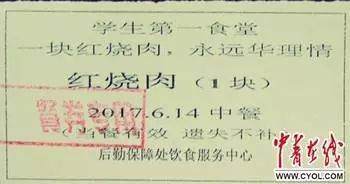 学生第一食堂
一块红烧肉，永远华理情
红烧肉（1块）
2017.6.14 中餐
（当餐有效 遗失不补）
后勤保障处饮食服务中心
餐券专用
中青在线
www.CYOL.com